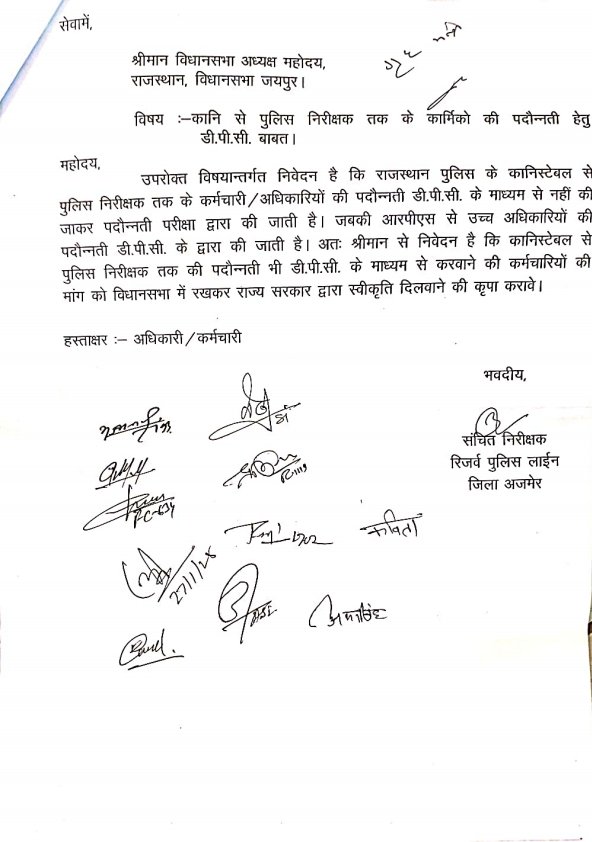 सेवामें,
श्रीमान विधानसभा अध्यक्ष महोदय,
राजस्थान, विधानसभा जयपुर।
विषय :–कानि से पुलिस निरीक्षक तक के कार्मिको की पदौन्नती हेतु
डी.पी.सी. बाबत।
महोदय,
उपरोक्त विषयान्तर्गत निवेदन है कि राजस्थान पुलिस के कानिस्टेबल से
पुलिस निरीक्षक तक के कर्मचारी/अधिकारियों की पदौन्नती डी.पी.सी. के माध्यम से नहीं की
जाकर पदौन्नती परीक्षा द्वारा की जाती है। जबकी आरपीएस से उच्च अधिकारियों की
पदौन्नती डी.पी.सी. के द्वारा की जाती है। अतः श्रीमान से निवेदन है कि कानिस्टेबल से
पुलिस निरीक्षक तक की पदौन्नती भी डी.पी.सी. के माध्यम से करवाने की कर्मचारियों की
मांग को विधानसभा में रखकर राज्य सरकार द्वारा स्वीकृति दिलवाने की कृपा करावे।
हस्ताक्षर :– अधिकारी/कर्मचारी
भवदीय,
संचित निरीक्षक
रिजर्व पुलिस लाईन
जिला अजमेर
कविता